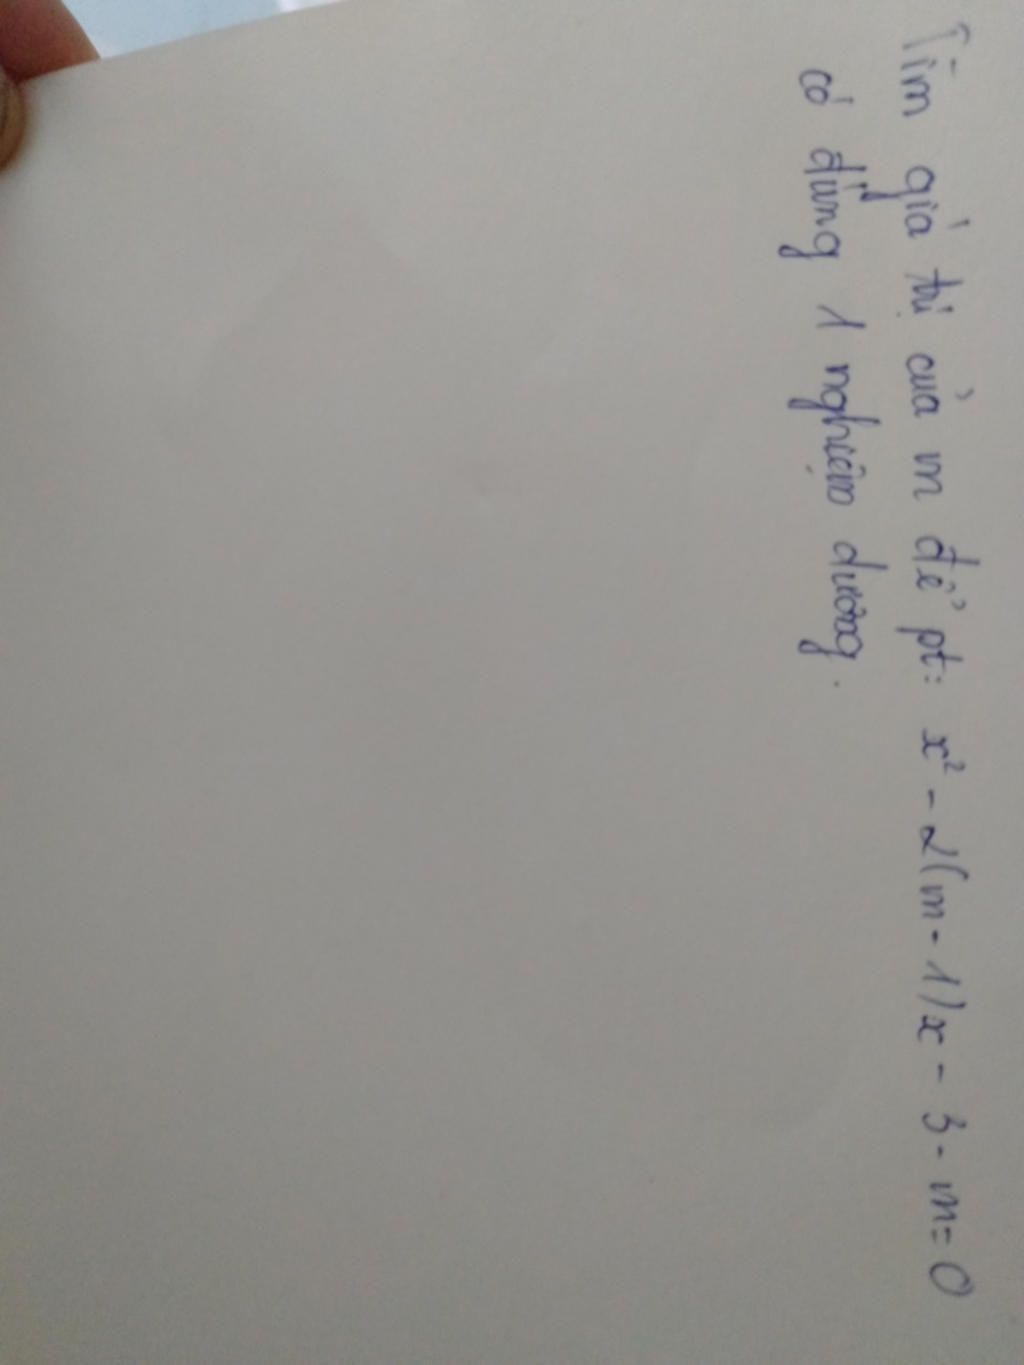 Tìm giá trị của m để pt: x² - 2(m - 1)x - 3 - m = 0
có đúng 1 nghiệm dương.